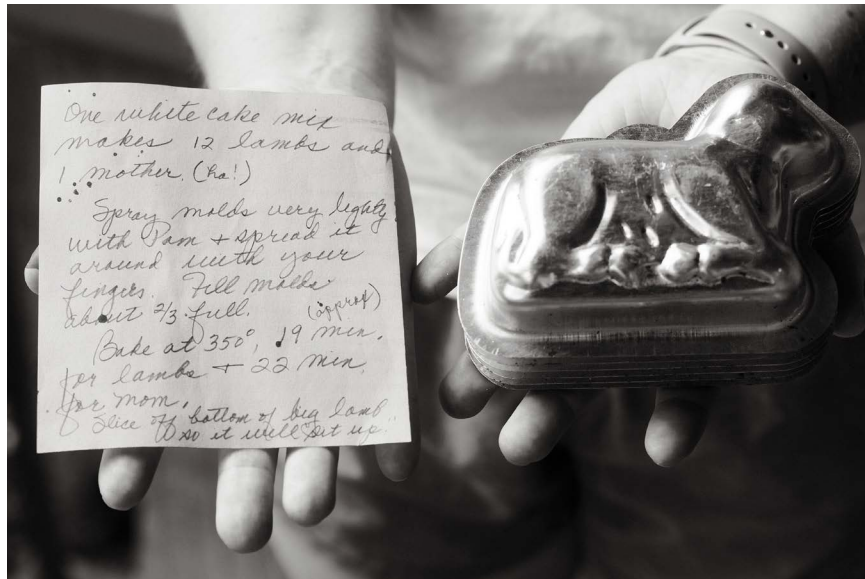 One white cake mix
makes 12 lambs and
1 mother. (ha!)
Spray molds very lightly
with Pam + spread it
around with your
fingers. Fill molds
about 2/3 full. (approx)
Bake at 350°, 19 min.
for lambs + 22 min.
for mom.
Slice off bottom of big lamb
so it will sit up.